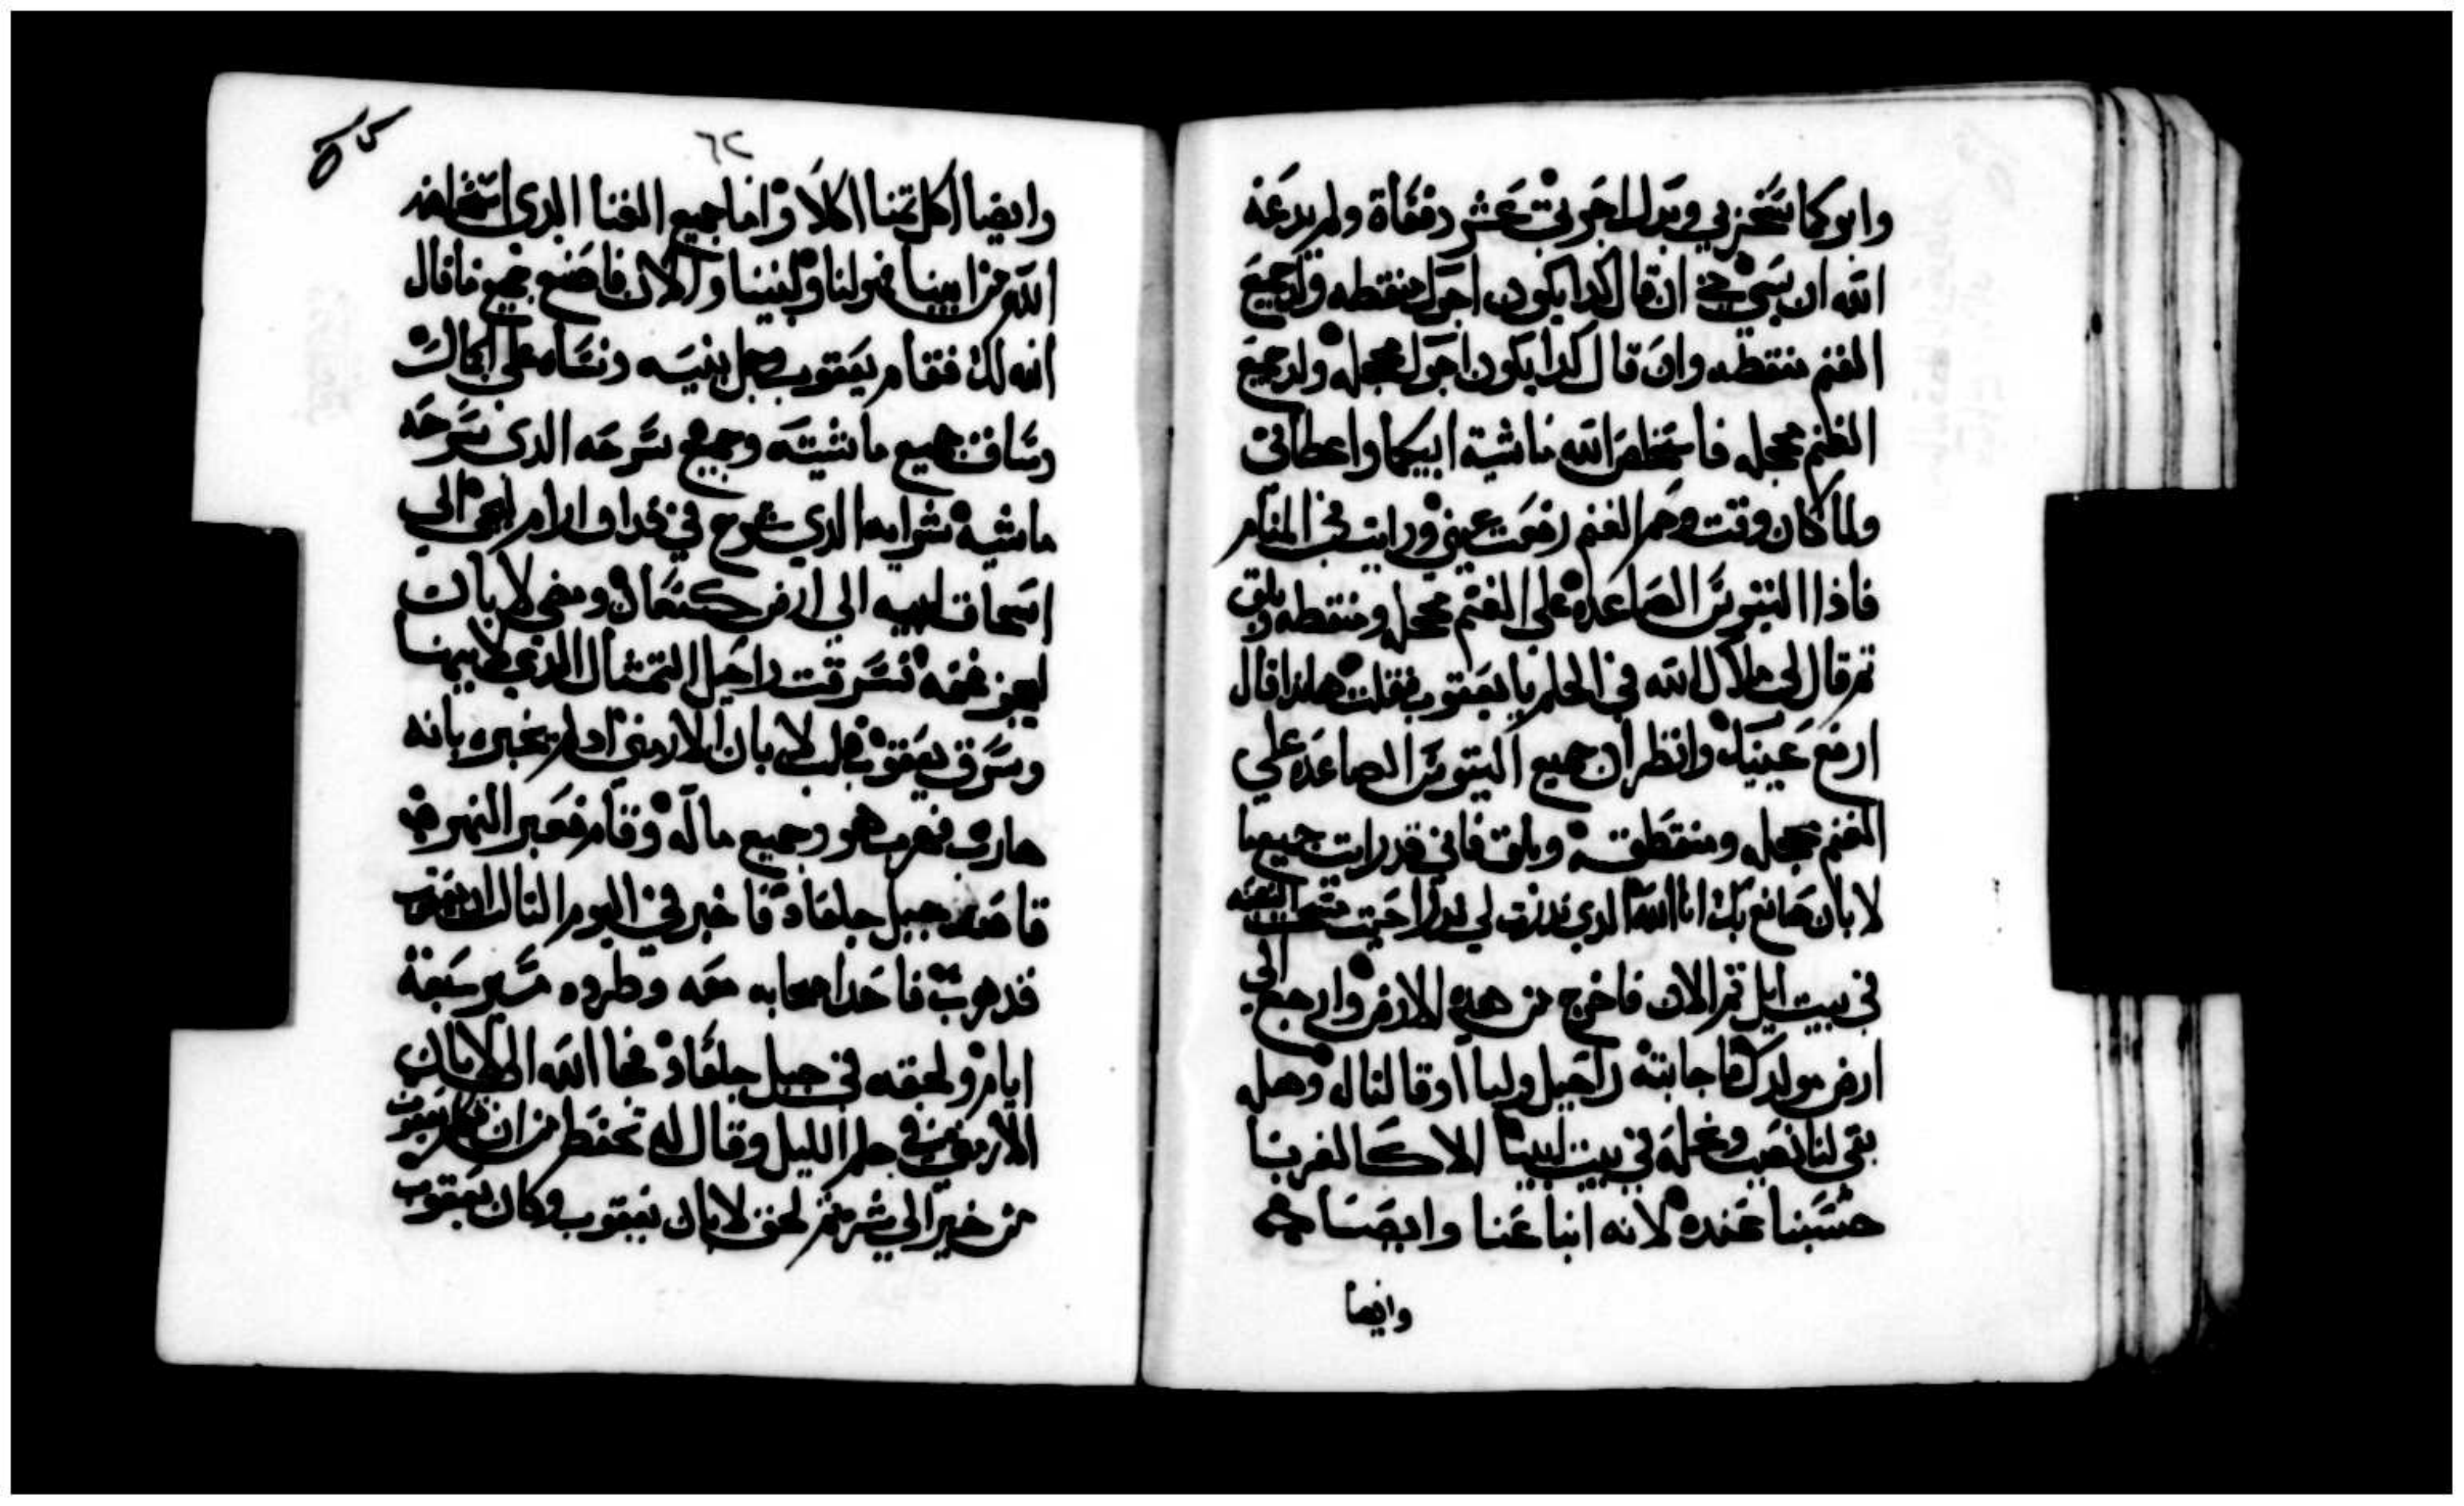 وابوكما سخر بي وبدل اجرتي عشر دفعاة ولم يدعه
الله ان يسي بي ان قال كدا يكون اجرك منقطه ولد جميع
الغنم منقطه وان قال كدا يكون اجرك محجله ولد جميع
الغنم محجله فاستخلص الله ماشية ابيكما واعطاني
ولما كان وقت وحم الغنم رفعت عيني ورايت في المنام
فاذا التيوس الصاعده علي الغنم محجله ومنقطه وبلق
تم قال لي ملاك الله في الحلم يا يعقوب فقلت هاندا قال
ارفع عينيك وانظر ان جميع التيوس الصاعده علي
الغنم محجله ومنقطه وبلق فاني قد رايت جميع ما
لابان صانع بك انا الله الدي ندرت لي ندرا حيت
في بيت ايل تم الان فاخرج من هده الارض وارجع الي
ارض مولدك فاجابته راحيل وليا اد قالتا له وهل
بقي لنا نصيب ونحله في بيت ابينا الا كالغربا
حسبنا عنده لانه اباعنا وايضا
وايضا
٦٢
وايضا اكل تمننا اكلا واما جميع الغنا الدي استخلصه
الله من ابينا فهو لنا ولبنينا والان فاصنع جميع ما قال
الله لك فقام يعقوب وحمل بنيه ونساه علي الجمال
وساق جميع ماشيته وجميع سرحه الدي سرحه
ماشية شرايه الدي سرح في فدان ارام ليجي الي
اسحاق ابيه الي ارض كنعان ومضي لابان
ليجز غنمه فسرقت راحيل التمثال الدي لابيها
وسرق يعقوب قلب لابان الارمني اد لم يخبره بانه
هارب فهرب هو وجميع ما له وقام فعبر النهر
قاصد جبل جلعاد فاخبر في اليوم التالت ان يعقوب
قد هرب فاخد اصحابه معه وطرده مسير سبعة
ايام ولحقه في جبل جلعاد فجا الله الي لابان
الارمني في حلم الليل وقال له تحفظ من ان تكلم يعقوب
من خير الي شر تم لحق لابان يعقوب وكان يعقوب